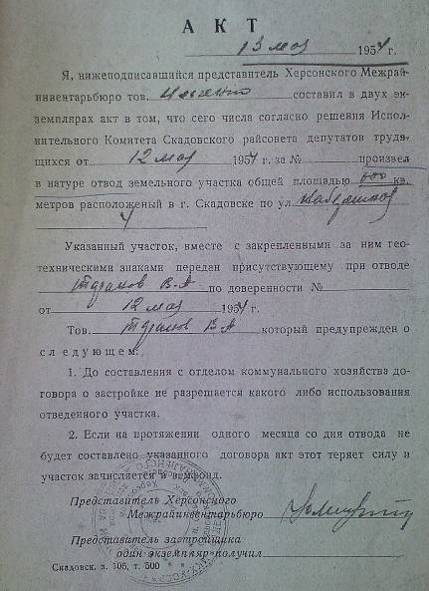 АКТ
13 мая 1954 г.
Я, нижеподписавшийся представитель Херсонского Межрай-
инвентарьбюро тов. составил в двух эк-
земплярах акт в том, что сего числа согласно решения Испол-
нительного Комитета Скадовского райсовета депутатов трудя-
щихся от 12 мая 1954 г. за № произвел
в натуре отвод земельного участка общей площадью 600 кв.
метров расположеный в г. Скадовске по ул.
4
Указанный участок, вместе с закрепленными за ним гео-
техническими знаками передан присутствующему при отводе
В. А по доверенности №
от 12 мая 1954 г.
Тов. В А который предупрежден о
следующем:
1. До составления с отделом коммунального хозяйства до-
говора о застройке не разрешается какого либо использования
отведенного участка.
2. Если на протяжении одного месяца со дня отвода не
будет составлено указанного договора акт этот теряет силу и
участок зачисляется в земфонд.
Представитель Херсонского
Межрайинвентарьбюро
Представитель застройщика
один экземпляр получил
Скадовск. з. 105, т. 500